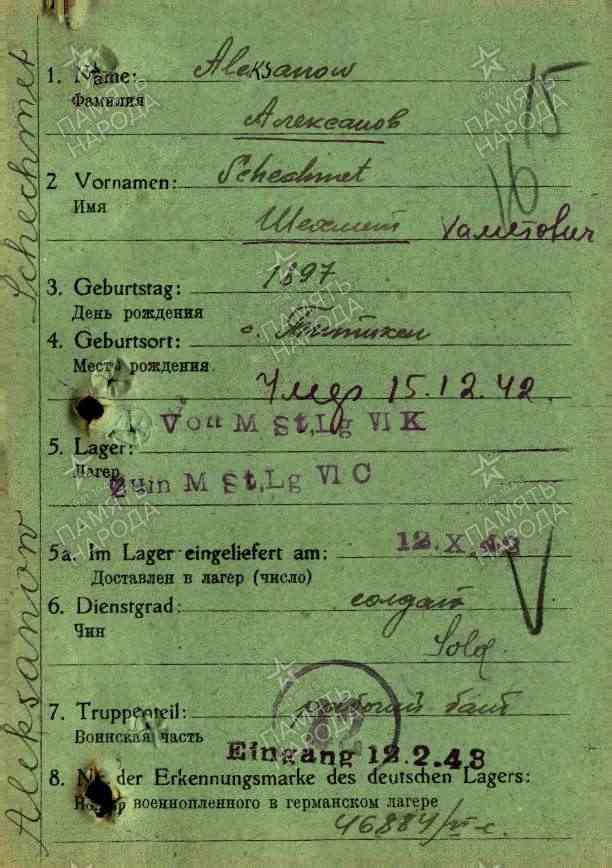 1. Name: Aleksanow
Фамилия
Алексанов
15
2 Vornamen: Schechmet
Имя
16
Шехмет Хаметович
3. Geburtstag: 1897
День рождения
4. Geburtsort: с.
Место рождения
Умер 15.12.42.
Von M St,Lg VI K
5. Lager:
Лагерь
Zum M St,Lg VI C
5a. Im Lager eingeliefert am: 12.X.42
Доставлен в лагерь (число)
6. Dienstgrad: солдат
Чин
Sold
V
7. Truppenteil: рабочий бат
Воинская часть
Eingang 12.2.43
8. Nr. der Erkennungsmarke des deutschen Lagers:
Номер военнопленного в германском лагере
46884/VI-c.
Aleksanow Schechmet
ПАМЯТЬ НАРОДА
ПАМЯТЬ НАРОДА
ПАМЯТЬ НАРОДА
ПАМЯТЬ НАРОДА
ПАМЯТЬ НАРОДА
ПАМЯТЬ НАРОДА